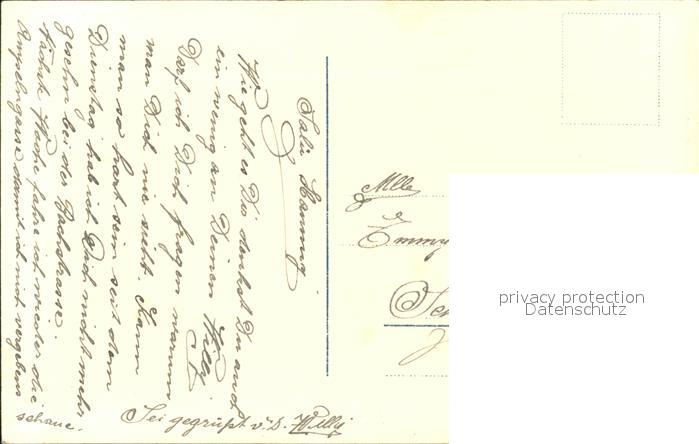 Salü Hammig
Wie geht es Dir denkst Du auch
ein wenig an Deinen Willy.
Darf ich Dich fragen warum
man Dich nie sieht. Kann
man so hart sein seit dem
Dienstag hab ich Dich nicht mehr
gesehn bei der Bachstrasse.
Nächste Woche fahre ich wieder die
Ampelngasse damit ich nicht vergebens
schaue.
Sei gegrüßt v. D. Willy
Mlle
Emmy
privacy protection
Datenschutz